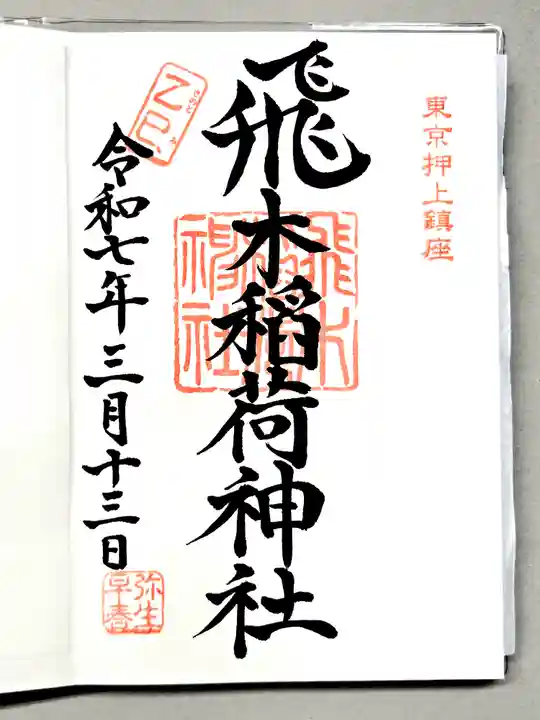 東京押上鎮座
飛木稲荷神社
飛木稲荷神社
乙巳
きのと
み
令和七年三月十三日
弥生
早春